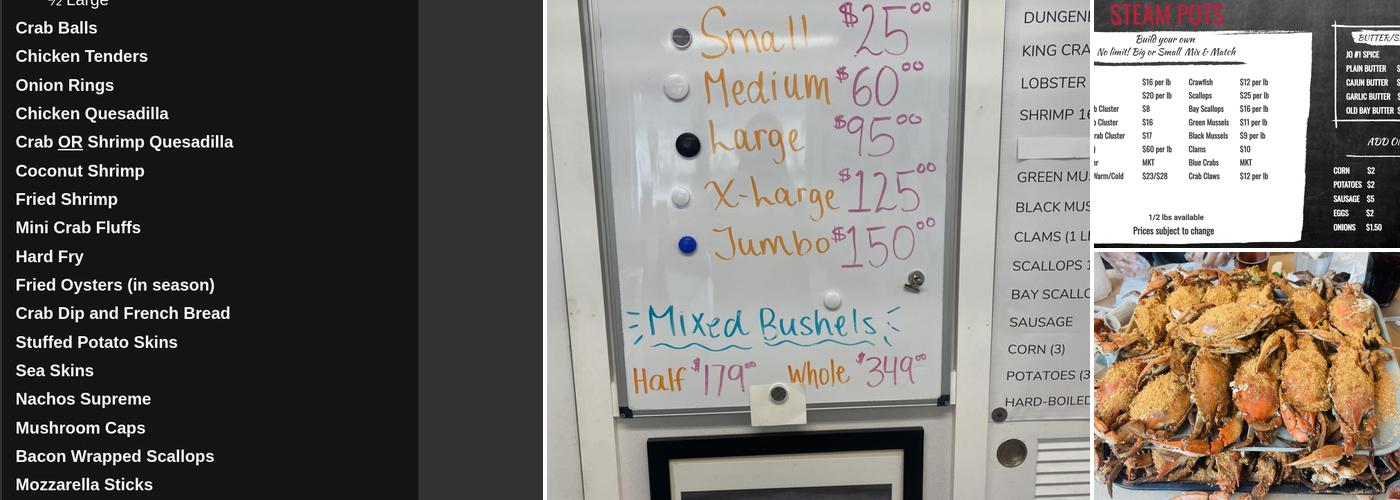 ½ Large
Crab Balls
Chicken Tenders
Onion Rings
Chicken Quesadilla
Crab OR Shrimp Quesadilla
Coconut Shrimp
Fried Shrimp
Mini Crab Fluffs
Hard Fry
Fried Oysters (in season)
Crab Dip and French Bread
Stuffed Potato Skins
Sea Skins
Nachos Supreme
Mushroom Caps
Bacon Wrapped Scallops
Mozzarella Sticks
Small $25.00
Medium $60.00
Large $95.00
X-Large $125.00
Jumbo $150.00
Mixed Bushels
Half $179.00 Whole $349.00
DUNGENE
KING CRA
LOBSTER
SHRIMP 16
GREEN MUS
BLACK MUS
CLAMS (1 L
SCALLOPS 1
BAY SCALLO
SAUSAGE
CORN (3)
POTATOES (3
HARD-BOILED
STEAM POTS
Build your own
No limit! Big or Small Mix & Match
$16 per lb Crawfish $12 per lb
$20 per lb Scallops $25 per lb
b Cluster $8 Bay Scallops $16 per lb
Cluster $16 Green Mussels $11 per lb
rab Cluster $17 Black Mussels $9 per lb
) $60 per lb Clams $10
er MKT Blue Crabs MKT
Warm/Cold $23/$28 Crab Claws $12 per lb
1/2 lbs available
Prices subject to change
BUTTER/S
JO #1 SPICE
PLAIN BUTTER $
CAJUN BUTTER $
GARLIC BUTTER $
OLD BAY BUTTER $
ADD O
CORN $2
POTATOES $2
SAUSAGE $5
EGGS $2
ONIONS $1.50